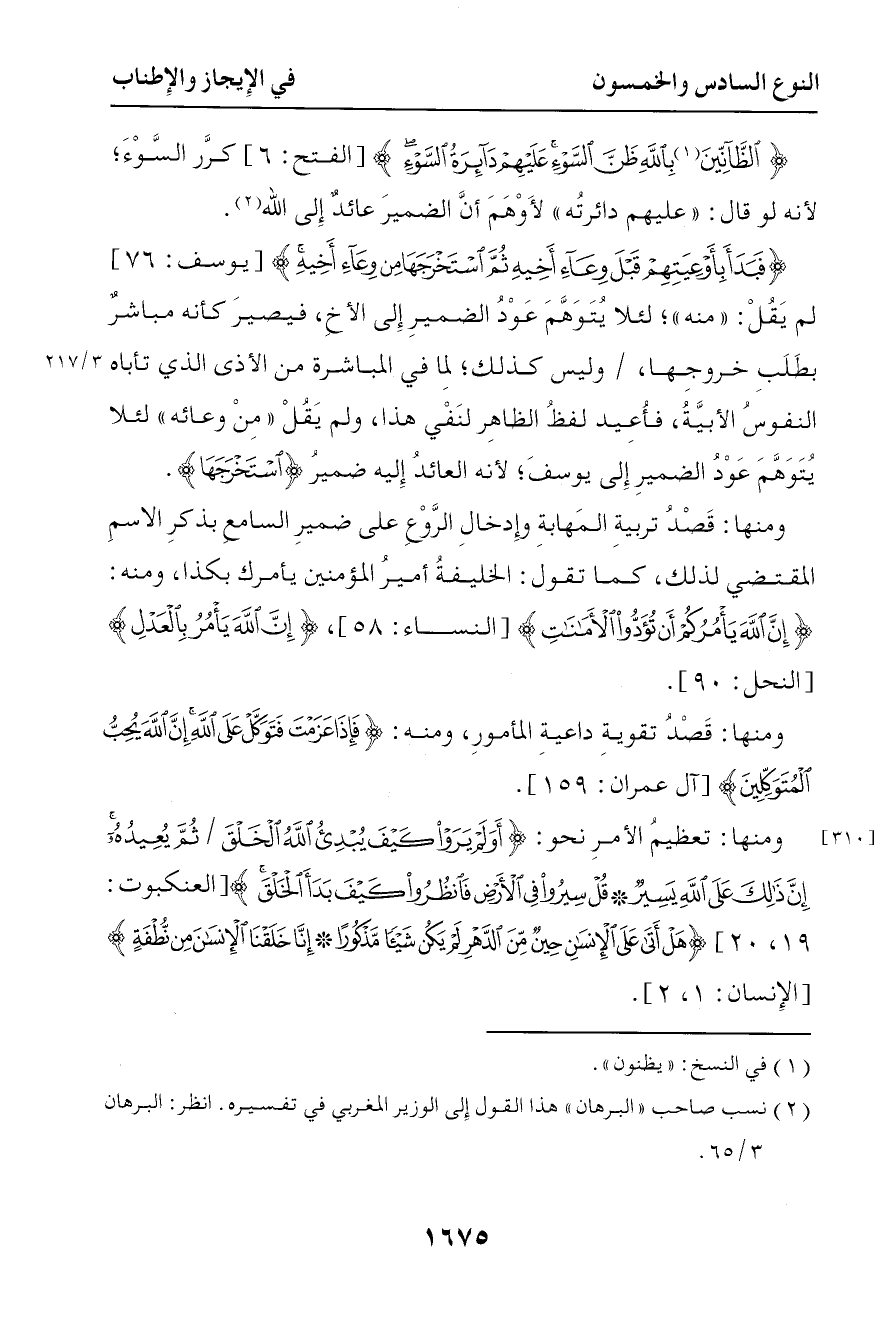 النوع السادس والخمسون في الإيجاز والإطناب
﴿ ٱلظَّآنِّينَ(١) بِٱللَّهِ ظَنَّ ٱلسَّوْءِۚ عَلَيْهِمْ دَآئِرَةُ ٱلسَّوْءِۖ ﴾ [الفتح: ٦] كرَّر السَّوْءَ؛
لأنه لو قال: «عليهم دائرتُه» لأَوْهَمَ أنَّ الضميرَ عائدٌ إلى الله(٢).
﴿فَبَدَأَ بِأَوْعِيَتِهِمْ قَبْلَ وِعَآءِ أَخِيهِ ثُمَّ ٱسْتَخْرَجَهَا مِن وِعَآءِ أَخِيهِۚ ﴾ [يوسف: ٧٦]
لم يَقُلْ: «منه»؛ لئلا يُتَوَهَّمَ عَوْدُ الضميرِ إلى الأخِ، فيصيرَ كأنه مباشرٌ
بطَلَبِ خروجها، / وليس كذلك؛ لِما في المباشرة من الأذى الذي تأباه ٢١٧/٣
النفوسُ الأبيَّةُ، فأُعيد لفظُ الظاهرِ لنَفْي هذا، ولم يَقُلْ «مِنْ وعائه» لئلا
يُتَوَهَّمَ عَوْدُ الضميرِ إلى يوسفَ؛ لأنه العائدُ إليه ضميرُ ﴿ٱسْتَخْرَجَهَا﴾.
ومنها: قَصْدُ تربيةِ المَهابةِ وإدخالِ الرَّوْعِ على ضميرِ السامعِ بذكرِ الاسمِ
المقتضي لذلك، كما تقول: الخليفةُ أميرُ المؤمنين يأمرك بكذا، ومنه:
﴿ إِنَّ ٱللَّهَ يَأْمُرُكُمْ أَن تُؤَدُّوا۟ ٱلْأَمَٰنَٰتِ ﴾ [النساء: ٥٨]، ﴿ إِنَّ ٱللَّهَ يَأْمُرُ بِٱلْعَدْلِ ﴾
[النحل: ٩٠].
ومنها: قَصْدُ تقويةِ داعيةِ المأمورِ، ومنه: ﴿ فَإِذَا عَزَمْتَ فَتَوَكَّلْ عَلَى ٱللَّهِۚ إِنَّ ٱللَّهَ يُحِبُّ
ٱلْمُتَوَكِّلِينَ ﴾ [آل عمران: ١٥٩].
ومنها: تعظيمُ الأمرِ نحو: ﴿ أَوَلَمْ يَرَوْا۟ كَيْفَ يُبْدِئُ ٱللَّهُ ٱلْخَلْقَ / ثُمَّ يُعِيدُهُۥٓۚ [٣١٠]
إِنَّ ذَٰلِكَ عَلَى ٱللَّهِ يَسِيرٌ * قُلْ سِيرُوا۟ فِى ٱلْأَرْضِ فَٱنظُرُوا۟ كَيْفَ بَدَأَ ٱلْخَلْقَۚ ﴾ [العنكبوت:
١٩، ٢٠] ﴿هَلْ أَتَىٰ عَلَى ٱلْإِنسَٰنِ حِينٌ مِّنَ ٱلدَّهْرِ لَمْ يَكُن شَيْـًٔا مَّذْكُورًا * إِنَّا خَلَقْنَا ٱلْإِنسَٰنَ مِن نُّطْفَةٍ ﴾
[الإنسان: ١، ٢].
(١) في النسخ: «يظنون».
(٢) نسب صاحب «البرهان» هذا القول إلى الوزير المغربي في تفسيره. انظر: البرهان
٦٥/٣.
١٦٧٥